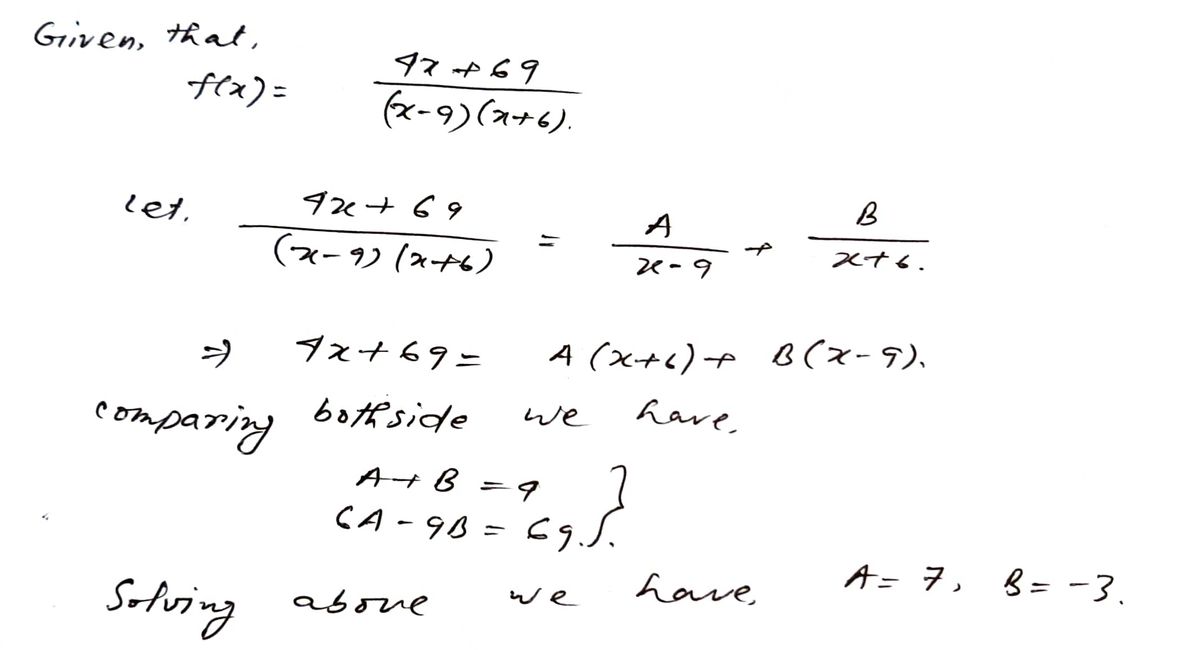 Given, that,
f(x) = (4x + 69) / ((x-9)(x+6)).
Let. (4x + 69) / ((x-9)(x+6)) = A / (x-9) + B / (x+6).
⇒ 4x + 69 = A(x+6) + B(x-9).
comparing bothside we have,
A + B = 4 }
6A - 9B = 69. }.
Solving above we have, A = 7, B = -3.